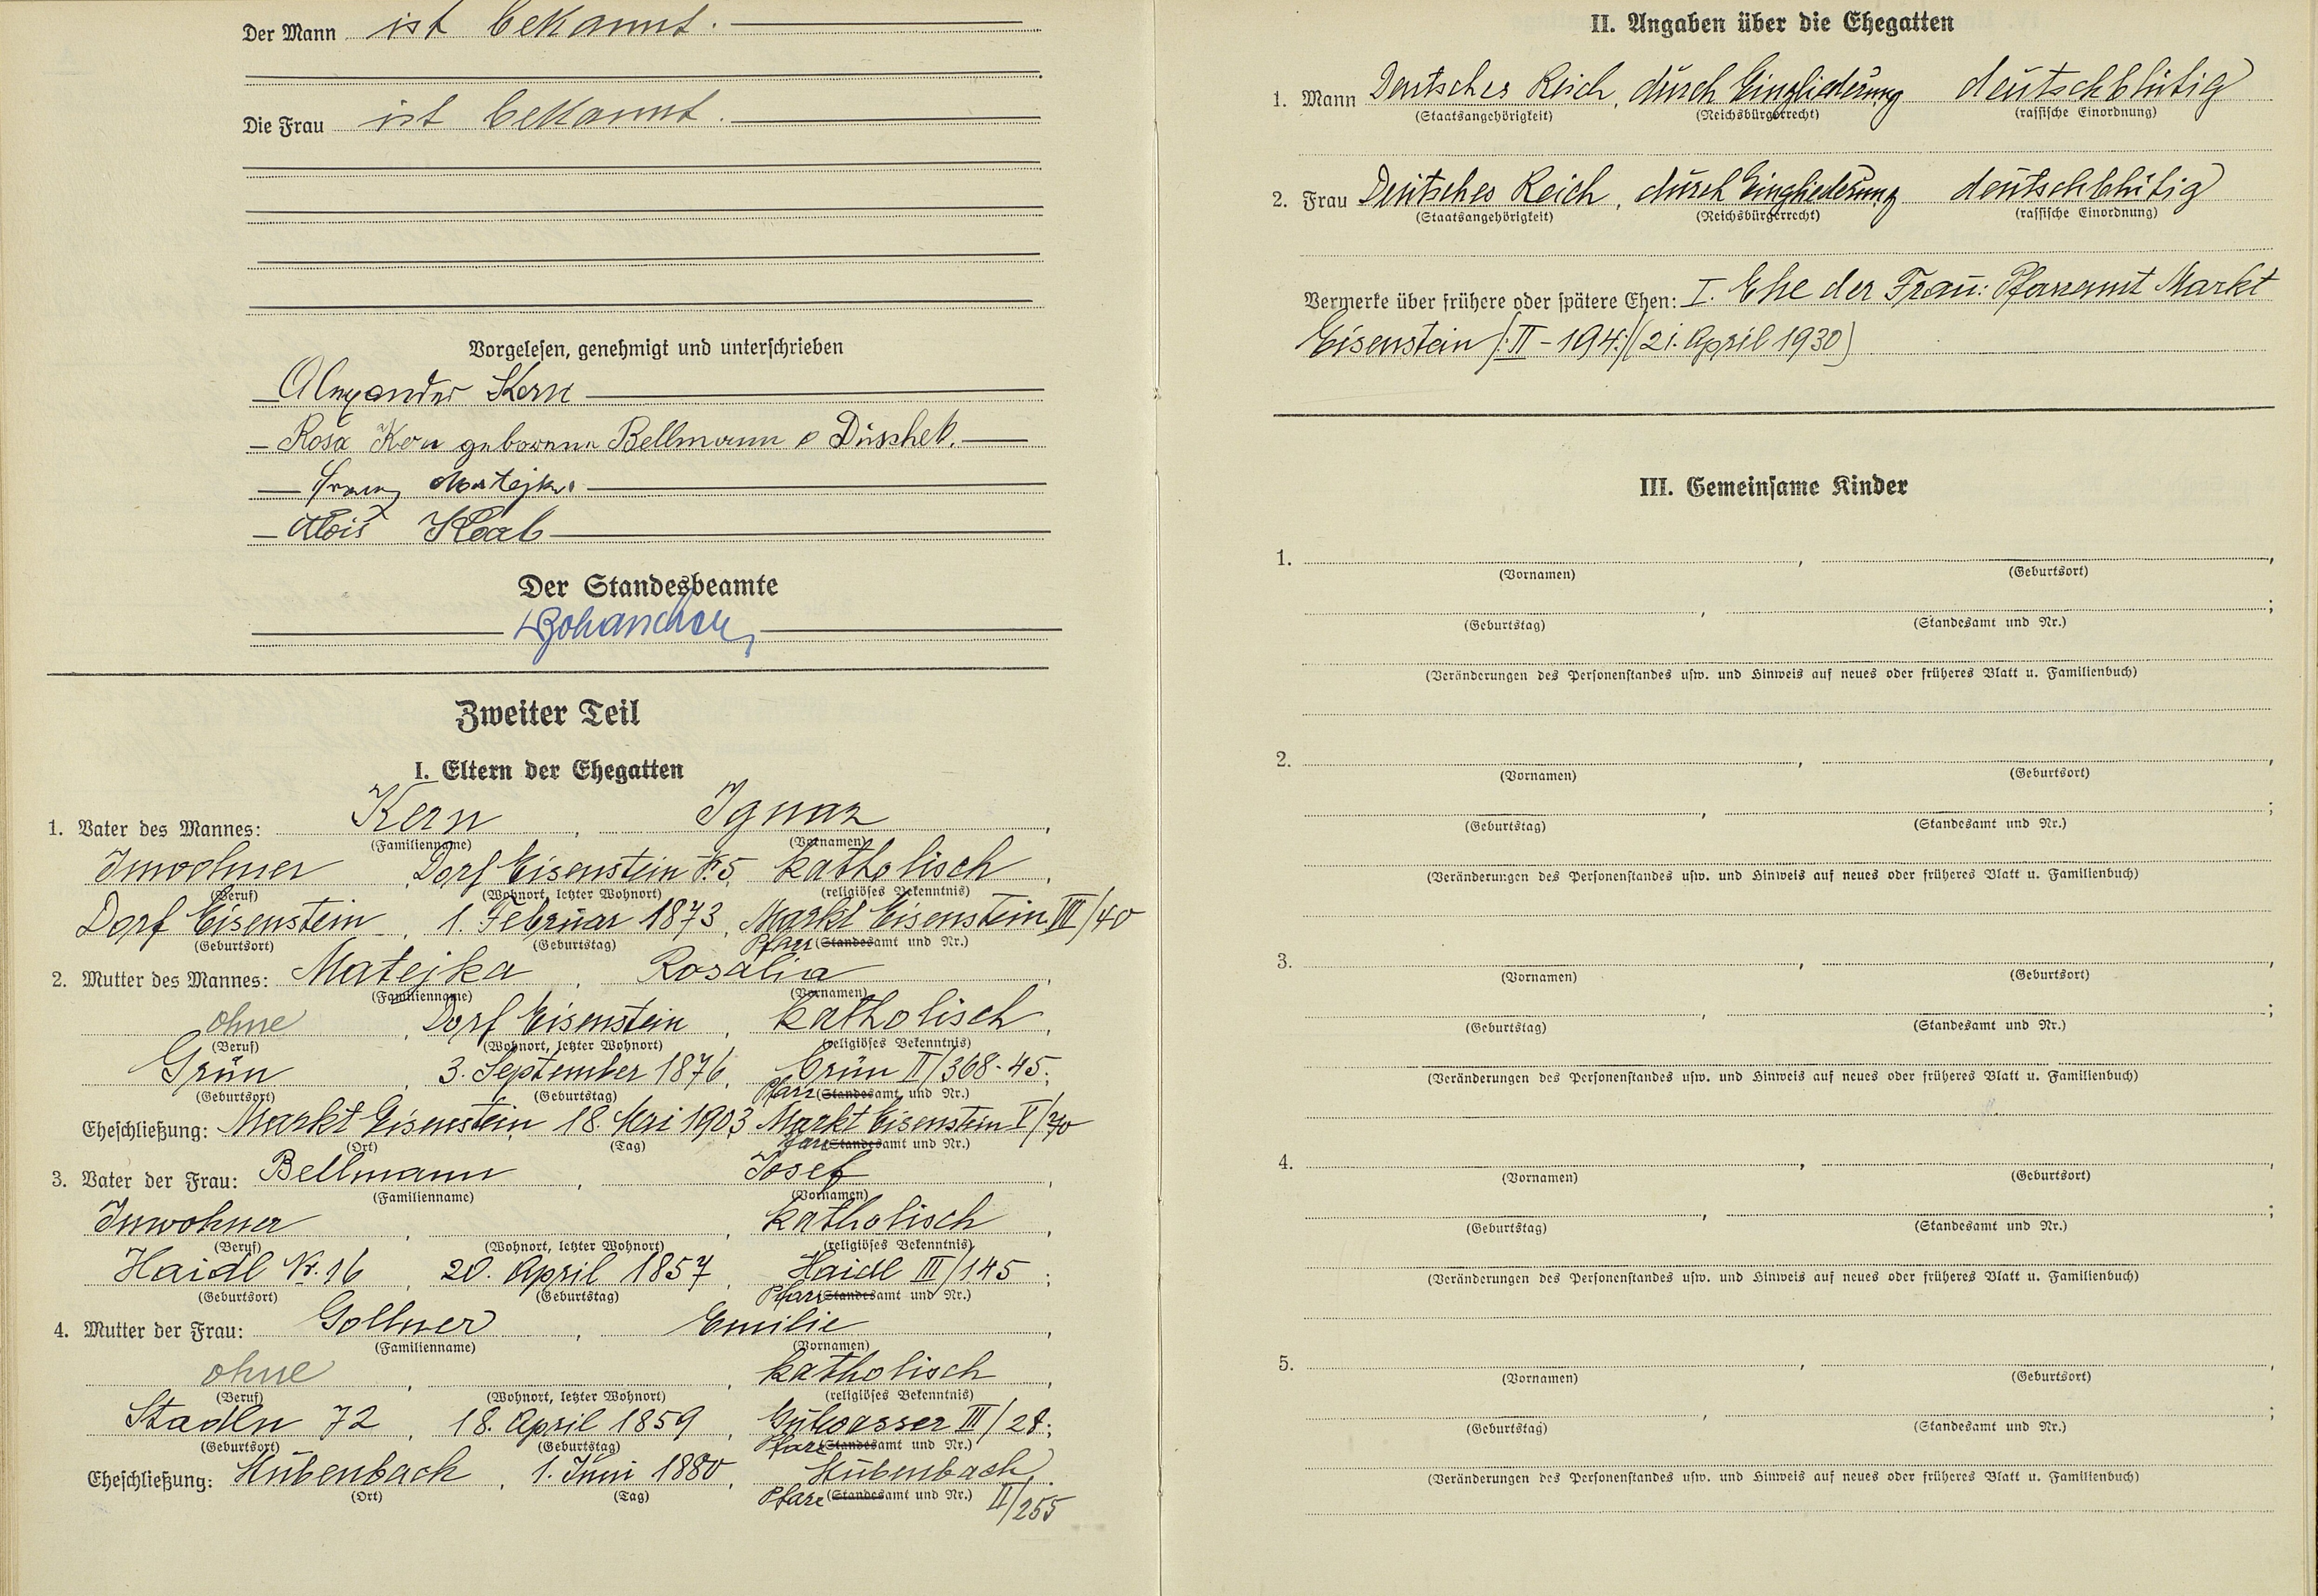 Der Mann ist bekannt.
Die Frau ist bekannt.
Vorgelesen, genehmigt und unterschrieben
Alexander Kern
Rosa Kern geborenen Bellmann Duschek.
Franz Matejka
Alois
Der Standesbeamte
Zweiter Teil
I. Eltern der Ehegatten
1. Vater des Mannes: Kern, Ignaz,
(Familienname) (Vornamen)
Inwohner, Dorf Eisenstein N. 5, katholisch,
(Beruf) (Wohnort, letzter Wohnort) (religiöses Bekenntnis)
Dorf Eisenstein, 1. Februar 1873, Markt Eisenstein VII/40
(Geburtsort) (Geburtstag) Pfarr (Standesamt und Nr.)
2. Mutter des Mannes: Matejka, Rosalia,
(Familienname) (Vornamen)
ohne, Dorf Eisenstein, katholisch,
(Beruf) (Wohnort, letzter Wohnort) (religiöses Bekenntnis)
Grün, 3. September 1876, Grün II/368-45;
(Geburtsort) (Geburtstag) Pfarr (Standesamt und Nr.)
Eheschließung: Markt Eisenstein, 18. Mai 1903, Markt Eisenstein V/70
(Ort) (Tag) Pfarr (Standesamt und Nr.)
3. Vater der Frau: Bellmann, Josef,
(Familienname) (Vornamen)
Inwohner, , katholisch,
(Beruf) (Wohnort, letzter Wohnort) (religiöses Bekenntnis)
Haidl Nr. 16, 20. April 1857, Haidl III/145;
(Geburtsort) (Geburtstag) Pfarr (Standesamt und Nr.)
4. Mutter der Frau: Gollner, Emilie,
(Familienname) (Vornamen)
ohne, , katholisch,
(Beruf) (Wohnort, letzter Wohnort) (religiöses Bekenntnis)
Stadln 72, 18. April 1859, Gutwasser III/28;
(Geburtsort) (Geburtstag) Pfarr (Standesamt und Nr.)
Eheschließung: Stubenbach, 1. Juni 1880, Stubenbach.
(Ort) (Tag) Pfarr (Standesamt und Nr.) II/255
II. Angaben über die Ehegatten
1. Mann Deutsches Reich, durch Eingliederung deutschblütig
(Staatsangehörigkeit) (Reichsbürgerrecht) (rassische Einordnung)
2. Frau Deutsches Reich, durch Eingliederung deutschblütig
(Staatsangehörigkeit) (Reichsbürgerrecht) (rassische Einordnung)
Vermerke über frühere oder spätere Ehen: I. Ehe der Frau: Pfarramt Markt
Eisenstein /:II-194:/ (21. April 1930)
III. Gemeinsame Kinder
1. , ,
(Vornamen) (Geburtsort)
, ;
(Geburtstag) (Standesamt und Nr.)
(Veränderungen des Personenstandes usw. und Hinweis auf neues oder früheres Blatt u. Familienbuch)
2. , ,
(Vornamen) (Geburtsort)
, ;
(Geburtstag) (Standesamt und Nr.)
(Veränderungen des Personenstandes usw. und Hinweis auf neues oder früheres Blatt u. Familienbuch)
3. , ,
(Vornamen) (Geburtsort)
, ;
(Geburtstag) (Standesamt und Nr.)
(Veränderungen des Personenstandes usw. und Hinweis auf neues oder früheres Blatt u. Familienbuch)
4. , ,
(Vornamen) (Geburtsort)
, ;
(Geburtstag) (Standesamt und Nr.)
(Veränderungen des Personenstandes usw. und Hinweis auf neues oder früheres Blatt u. Familienbuch)
5. , ,
(Vornamen) (Geburtsort)
, ;
(Geburtstag) (Standesamt und Nr.)
(Veränderungen des Personenstandes usw. und Hinweis auf neues oder früheres Blatt u. Familienbuch)